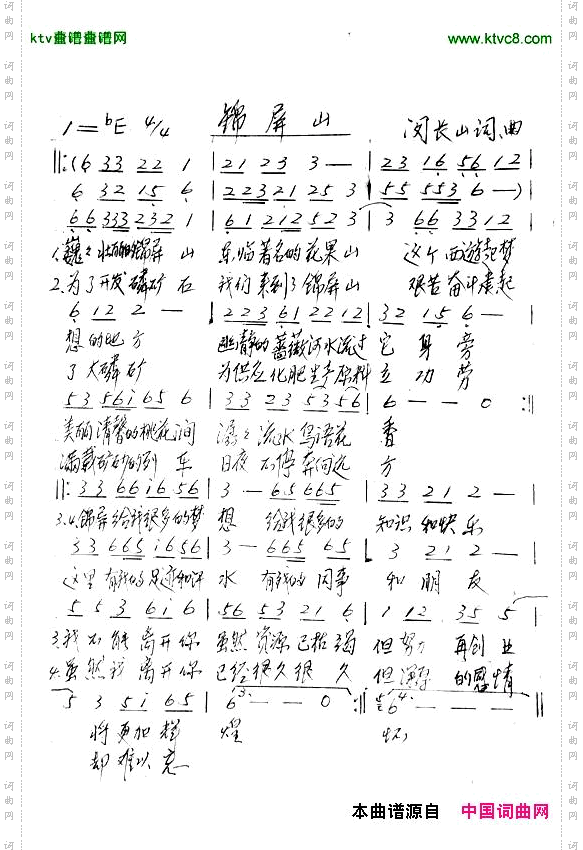 ktv曲谱曲谱网 www.ktvc8.com
1=bE 4/4 锦屏山 闵长山词、曲
‖:(6 33 22 1 | 21 23 3 — | 23 16 56 12 |
6 32 15 6 | 223 21 25 3 | 55 553 6 —) |
66 333 232 1 | 61 212 52 3 | 3 66 33 12 |
1.巍々壮丽的锦屏山 东临著名的花果山 这个西游起梦
2.为了开发磷矿石 我们来到了锦屏山 艰苦奋斗建起
6 12 2 — | 223 61 22 12 | 32 15 6 — |
想的地方 幽静的蔷薇河水流过它身旁
了大磷矿 为供应化肥生产原料立功劳
53 56i 65 6 | 33 23 53 56 | 6 — — 0 :‖
美丽清馨的桃花涧 潺々流水鸟语花香
满载矿砂的列车 日夜不停奔向远方
‖: 33 66 i6 56 | 3 — 65 665 | 33 21 2 — |
3.4.锦屏给我很多的梦想 给我很多的 知识和快乐
33 665 i6 56 | 3 — 665 65 | 3 21 2 — |
这里有我的足迹和汗水 有我的同事和朋友
5 5 3 6i 6 | 56 53 21 6 | 1 12 35 5 |
3.我不能离开你 虽然资源已枯竭 但努力再创业
4.虽然我离开你 已经很久很久 但深厚的感情
5 3 5i 65 | 6 — — 0 :‖ 6 — — — ‖
将更加辉煌 怀
却难以忘
本曲谱源自 中国词曲网